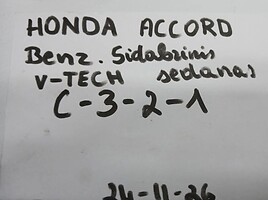 HONDA ACCORD
Benz. Sidabrinis
V-TECH sedanas
C-3-2-1
24-11-26